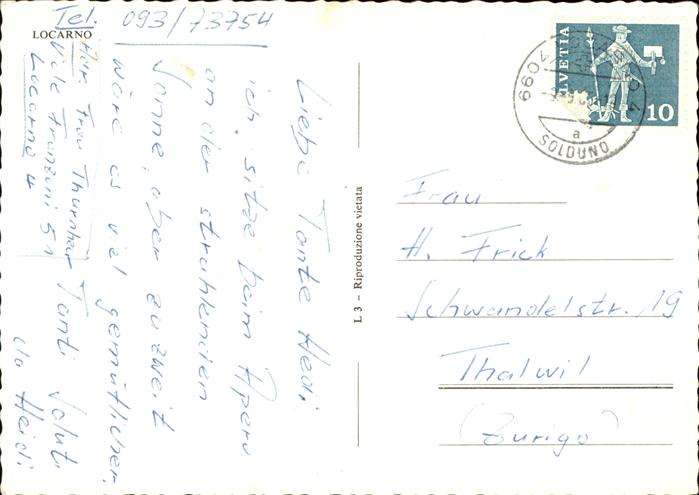 LOCARNO
Tel. 093/73754
Liebe Tante Hedi,
ich sitze beim Apero
an der strahlenden
Sonne, aber zu zweit
wäre es viel gemütlicher.
Tanti Saluti
da Heidi
Frau Thurnher
Locarno 4
L 3 – Riproduzione vietata
HELVETIA
10
SOLDUNO
a
Frau
H. Frick
Schwandelstr. 19
Thalwil
(Zurigo)